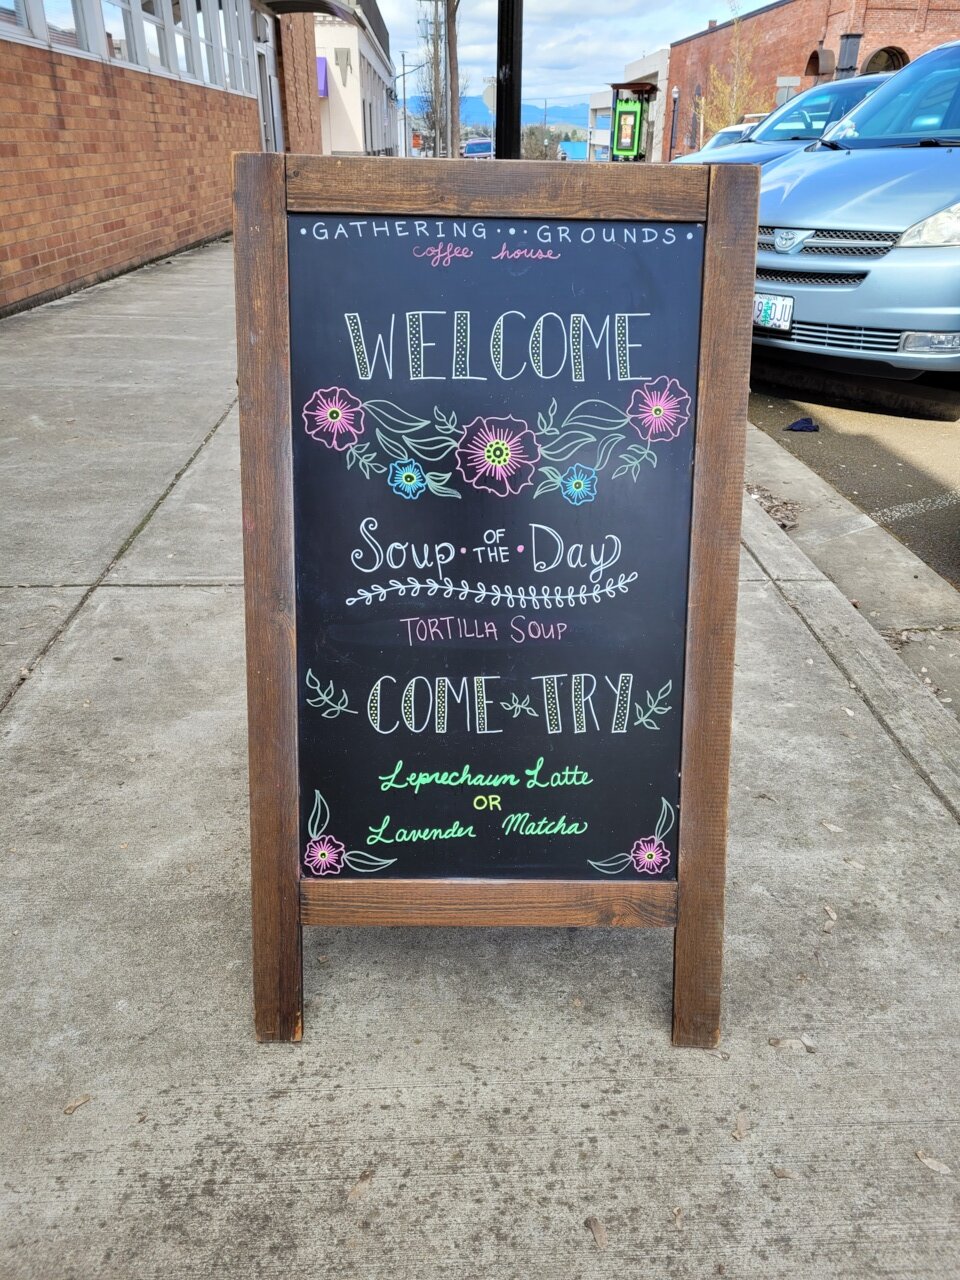 •GATHERING•••GROUNDS•
coffee house
WELCOME
Soup • OF THE • Day
TORTILLA SOUP
COME TRY
Leprechaun Latte
OR
Lavender Matcha
DJU